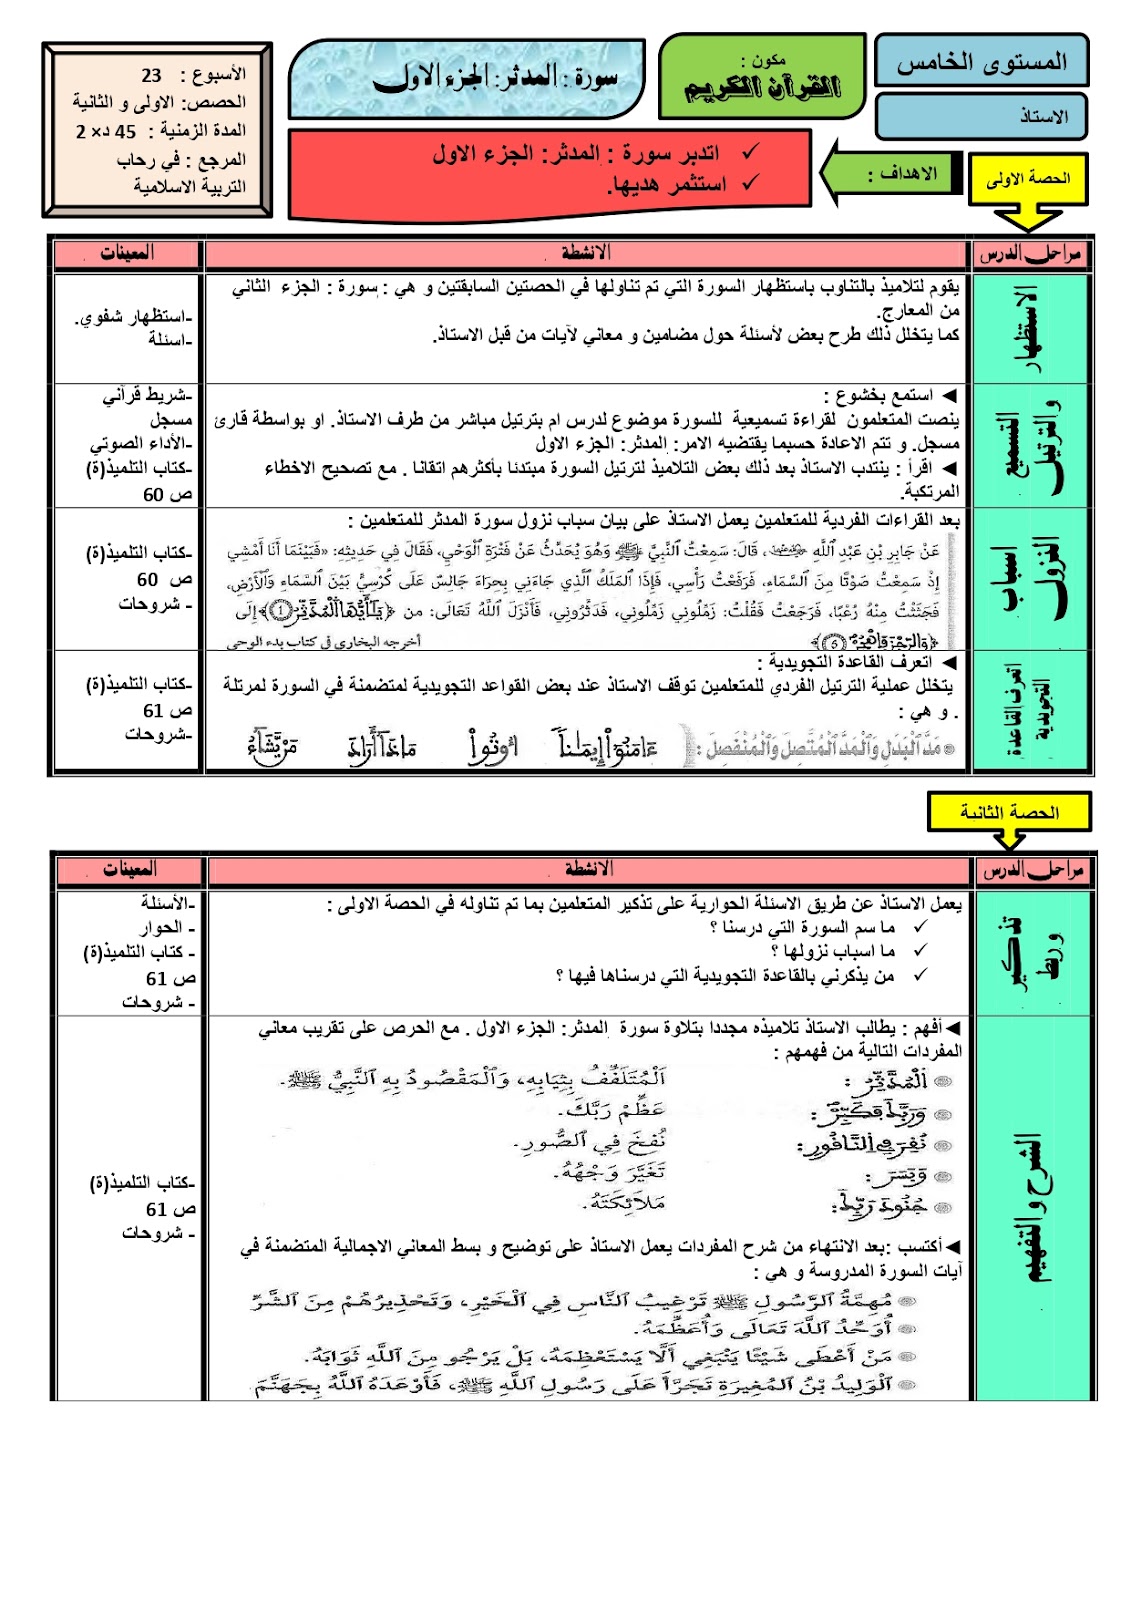 المستوى الخامس
الاستاذ
مكون :
القرآن الكريم
سورة : المدثر: الجزء الاول
الأسبوع : 23
الحصص: الاولى و الثانية
المدة الزمنية : 45 د× 2
المرجع : في رحاب
التربية الاسلامية
الاهداف :
✓ اتدبر سورة : المدثر: الجزء الاول
✓ استثمر هديها.
الحصة الاولى
مراحل الدرس
الانشطة
المعينات
الاستظهار
يقوم لتلاميذ بالتناوب باستظهار السورة التي تم تناولها في الحصتين السابقتين و هي : سورة : الجزء الثاني
من المعارج.
كما يتخلل ذلك طرح بعض لأسئلة حول مضامين و معاني لآيات من قبل الاستاذ.
-استظهار شفوي.
-اسئلة
التسميع
والترتيل
◄ استمع بخشوع :
ينصت المتعلمون لقراءة تسميعية للسورة موضوع لدرس ام بترتيل مباشر من طرف الاستاذ. او بواسطة قارئ
مسجل. و تتم الاعادة حسبما يقتضيه الامر: المدثر: الجزء الاول
◄ اقرأ : ينتدب الاستاذ بعد ذلك بعض التلاميذ لترتيل السورة مبتدئا بأكثرهم اتقانا . مع تصحيح الاخطاء
المرتكبة.
-شريط قرآني
مسجل
-الأداء الصوتي
-كتاب التلميذ(ة)
ص 60
اسباب
النزول
بعد القراءات الفردية للمتعلمين يعمل الاستاذ على بيان سباب نزول سورة المدثر للمتعلمين :
عَنْ جَابِرِ بْنِ عَبْدِ اللَّهِ ، قَالَ: سَمِعْتُ النَّبِيَّ ﷺ وَهُوَ يُحَدِّثُ عَنْ فَتْرَةِ الْوَحْيِ، فَقَالَ فِي حَدِيثِهِ: «فَبَيْنَمَا أَنَا أَمْشِي
إِذْ سَمِعْتُ صَوْتًا مِنَ السَّمَاءِ، فَرَفَعْتُ رَأْسِي، فَإِذَا الْمَلَكُ الَّذِي جَاءَنِي بِحِرَاءَ جَالِسٌ عَلَى كُرْسِيٍّ بَيْنَ السَّمَاءِ وَالْأَرْضِ،
فَجَثَثْتُ مِنْهُ رُعْبًا، فَرَجَعْتُ فَقُلْتُ: زَمِّلُونِي زَمِّلُونِي، فَدَثَّرُونِي، فَأَنْزَلَ اللَّهُ تَعَالَى: من ﴿يَٰأَيُّهَا ٱلْمُدَّثِّرُ (1)﴾ إِلَى
﴿وَالرِّجْزَ فَاهْجُرْ (5)﴾ أخرجه البخاري في كتاب بدء الوحي
-كتاب التلميذ(ة)
ص 60
- شروحات
اتعرف القاعدة
التجويدية
◄ اتعرف القاعدة التجويدية :
يتخلل عملية الترتيل الفردي للمتعلمين توقف الاستاذ عند بعض القواعد التجويدية لمتضمنة في السورة لمرتلة
. و هي :
مَدَّ الْبَدَلِ وَالْمَدَّ الْمُتَّصِلَ وَالْمُنْفَصِلَ : ءَامَنُوٓاْ إِيمَٰناً اُوتُواْ مَاذَآ أَرَادَ مَنْ يَّشَآءُ
-كتاب التلميذ(ة)
ص 61
-شروحات
الحصة الثانية
مراحل الدرس
الانشطة
المعينات
تذكير
و ربط
يعمل الاستاذ عن طريق الاسئلة الحوارية على تذكير المتعلمين بما تم تناوله في الحصة الاولى :
✓ ما سم السورة التي درسنا ؟
✓ ما اسباب نزولها ؟
✓ من يذكرني بالقاعدة التجويدية التي درسناها فيها ؟
-الأسئلة
- الحوار
- كتاب التلميذ(ة)
ص 61
- شروحات
الشرح و التفهيم
◄أفهم : يطالب الاستاذ تلاميذه مجددا بتلاوة سورة المدثر: الجزء الاول . مع الحرص على تقريب معاني
المفردات التالية من فهمهم :
الْمُدَّثِّرُ : اَلْمُتَلَفِّفُ بِثِيَابِهِ، وَالْمَقْصُودُ بِهِ النَّبِيُّ ﷺ.
وَرَبَّكَ فَكَبِّرْ : عَظِّمْ رَبَّكَ.
نُقِرَ فِي النَّاقُورِ : نُفِخَ فِي الصُّورِ.
وَبَسَرَ : تَغَيَّرَ وَجْهُهُ.
جُنُودَ رَبِّكَ : مَلَائِكَتَهُ.
◄أكتسب :بعد الانتهاء من شرح المفردات يعمل الاستاذ على توضيح و بسط المعاني الاجمالية المتضمنة في
آيات السورة المدروسة و هي :
مُهِمَّةُ الرَّسُولِ ﷺ تَرْغِيبُ النَّاسِ فِي الْخَيْرِ، وَتَحْذِيرُهُمْ مِنَ الشَّرِّ
أُوَحِّدُ اللَّهَ تَعَالَى وَأُعَظِّمُهُ.
مَنْ أَعْطَى شَيْئًا يَنْبَغِي أَلَّا يَسْتَعْظِمَهُ، بَلْ يَرْجُو مِنَ اللَّهِ ثَوَابَهُ.
الْوَلِيدُ بْنُ الْمُغِيرَةِ تَجَرَّأَ عَلَى رَسُولِ اللَّهِ ﷺ، فَأَوْعَدَهُ اللَّهُ بِجَهَنَّمَ
-كتاب التلميذ(ة)
ص 61
- شروحات